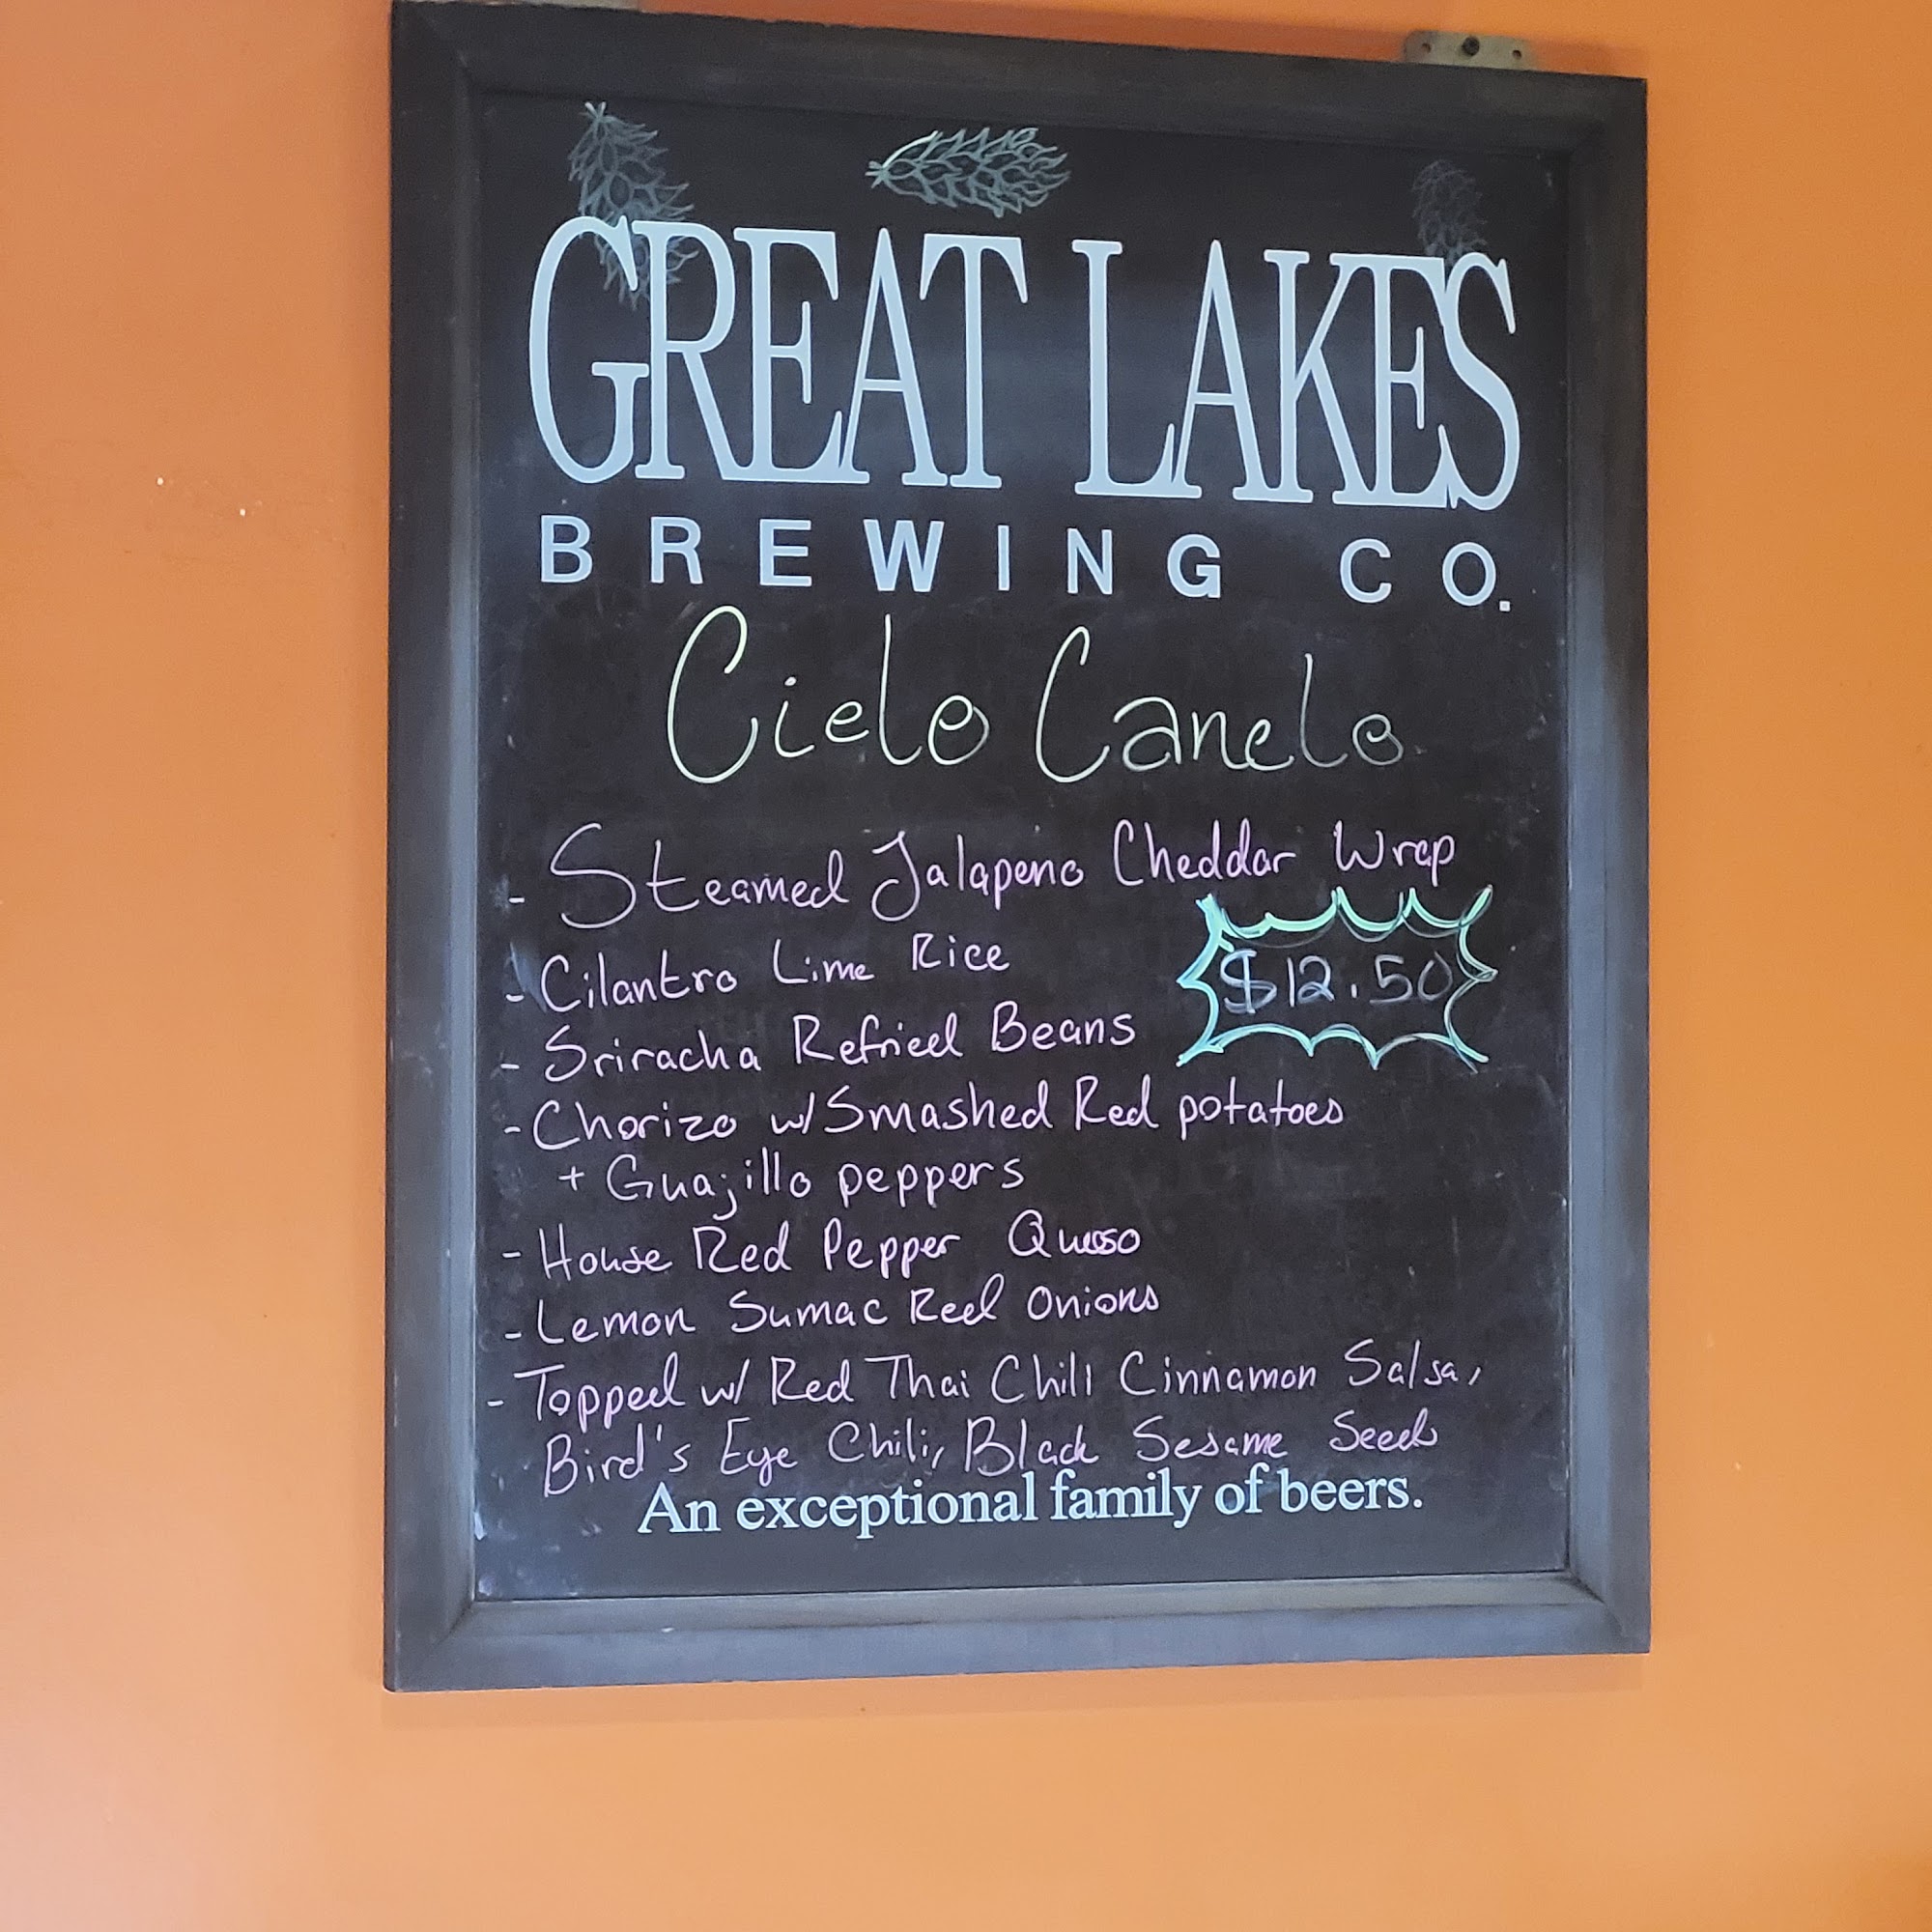 GREAT LAKES
BREWING CO.
Cielo Canelo
- Steamed Jalapeno Cheddar Wrap
- Cilantro Lime Rice
$12.50
- Sriracha Refried Beans
- Chorizo w/ Smashed Red potatoes
+ Guajillo peppers
- House Red Pepper Queso
- Lemon Sumac Red Onions
- Topped w/ Red Thai Chili Cinnamon Salsa,
Bird's Eye Chili, Black Sesame Seeds
An exceptional family of beers.